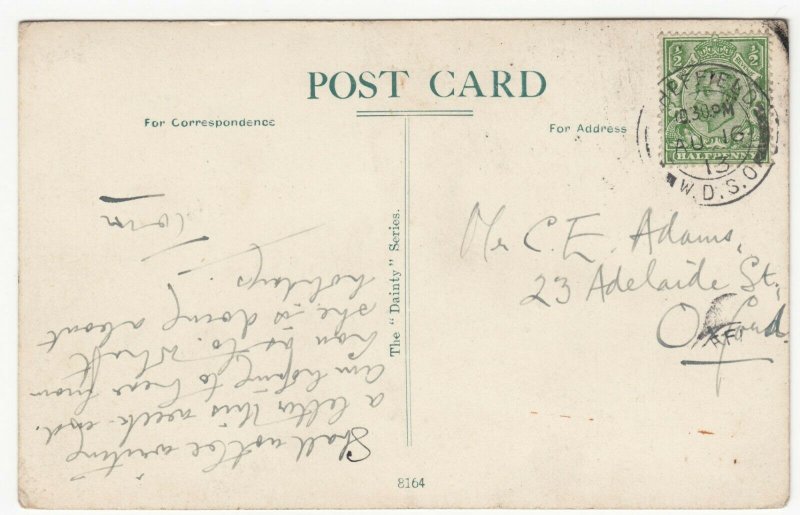 POST CARD
For Correspondence
For Address
½ ½
HALFPENNY
30 PM
AU 16
13
W.D.S.O
Shall not be writing
a letter this week-end.
am hoping to hear from
as to what
she is doing about
holidays.
Tom
The "Dainty" Series.
Mr C. E. Adams,
23 Adelaide St.,
Oxford
8164